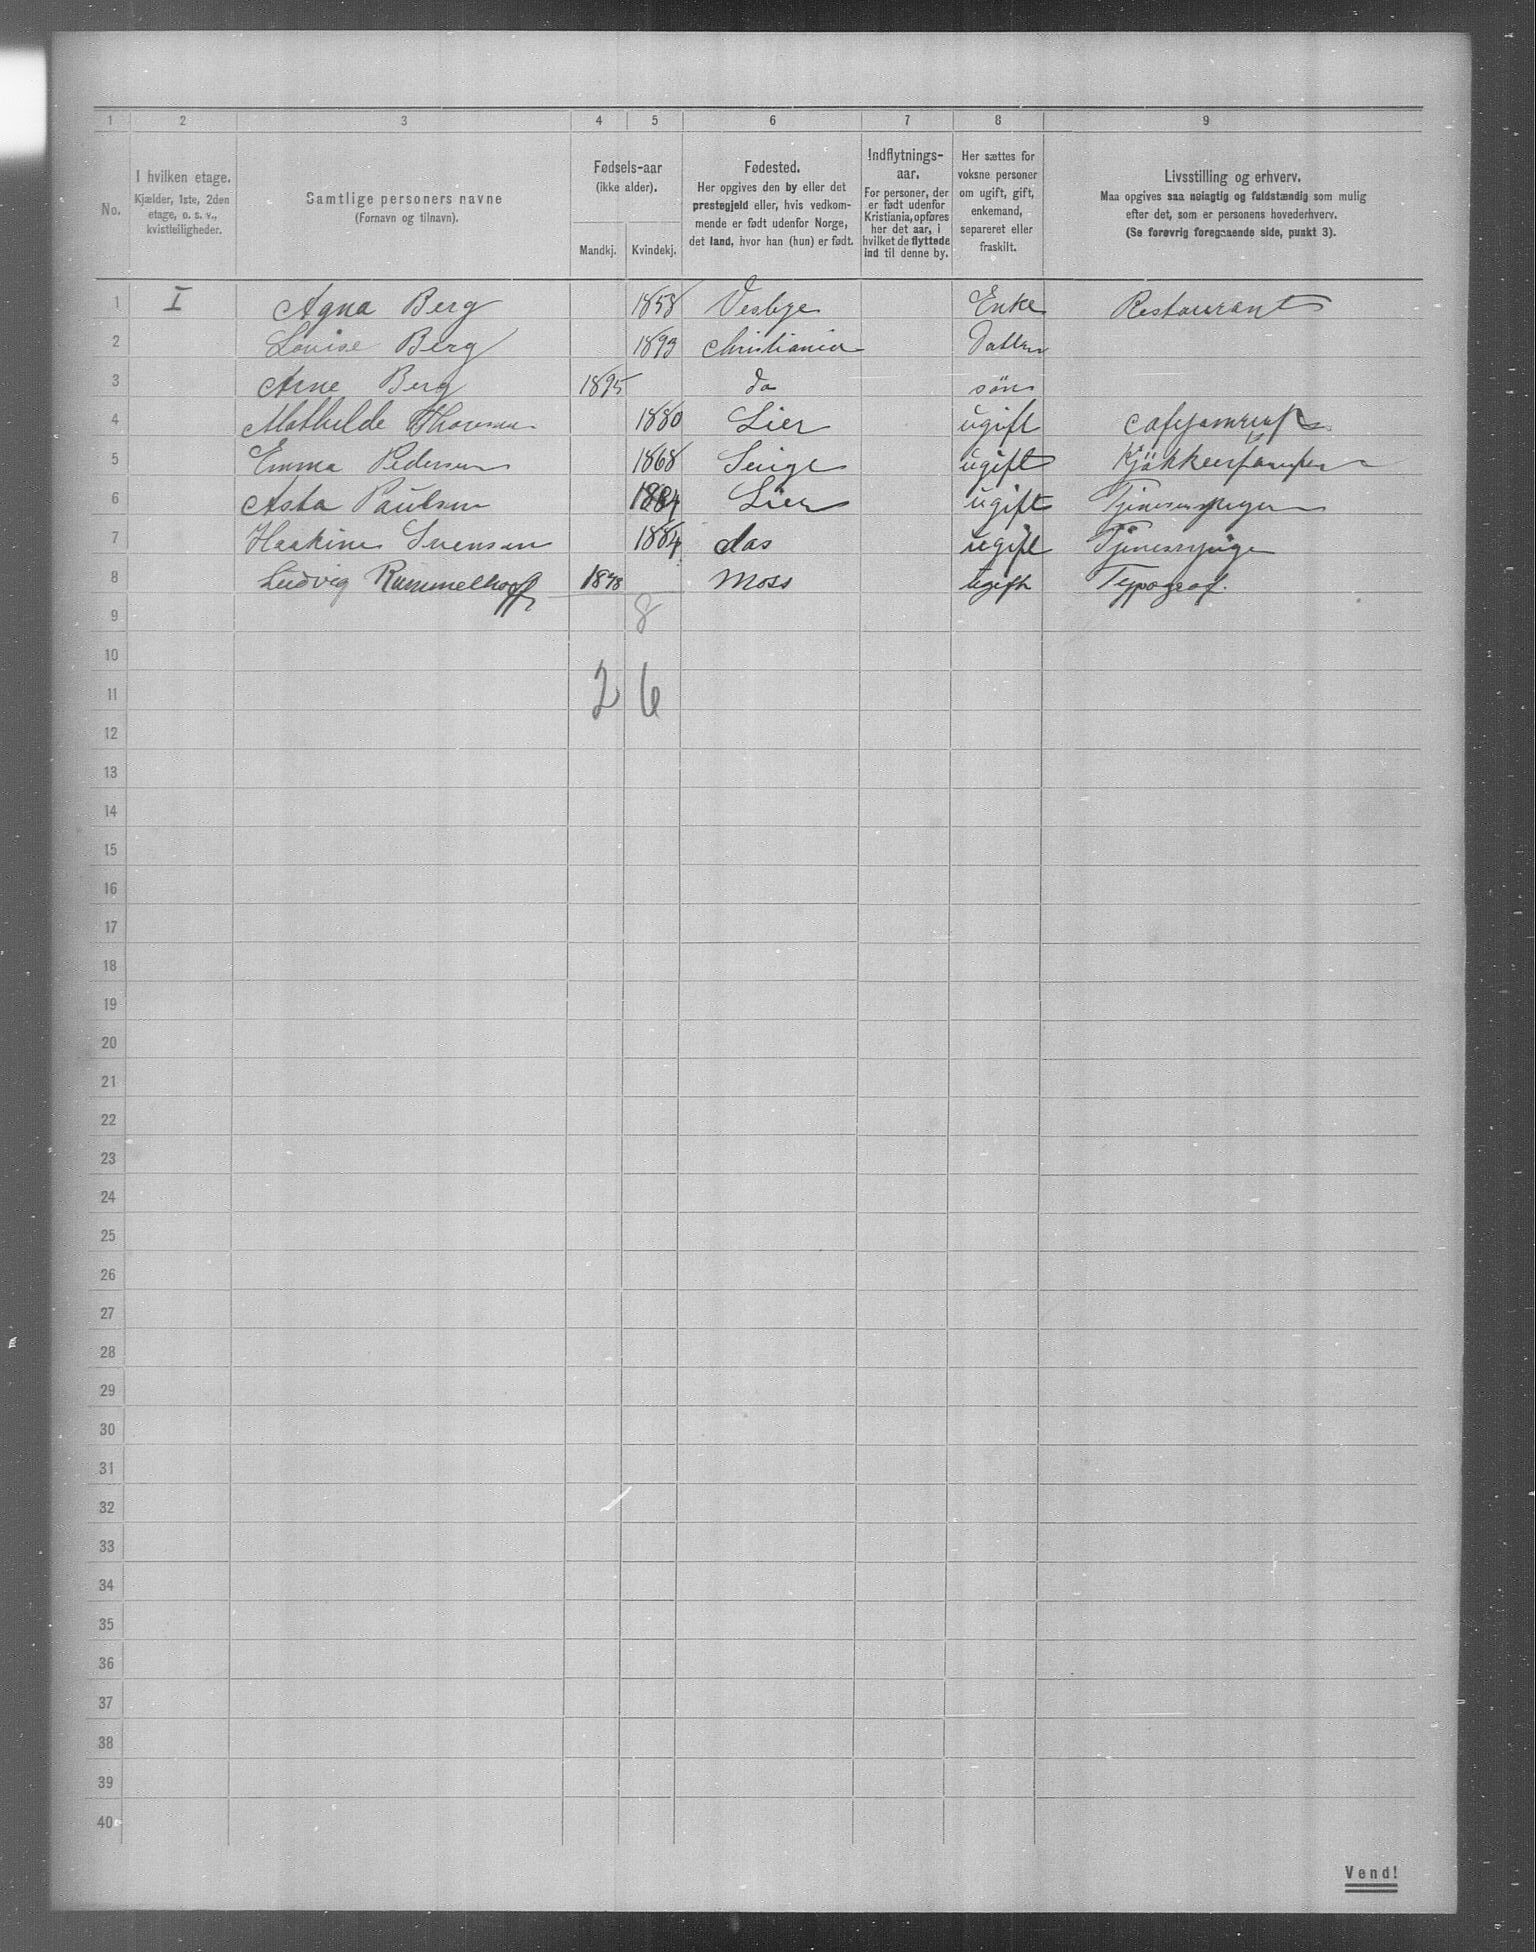 1 2 3 4 5 6 7 8 9
No.
I hvilken etage.
Kjælder, 1ste, 2den
etage, o. s. v.,
kvistleiligheder.
Samtlige personers navne
(Fornavn og tilnavn).
Fødsels-aar
(ikke alder).
Mandkj. Kvindekj.
Fødested.
Her opgives den by eller det
prestegjeld eller, hvis vedkom-
mende er født udenfor Norge,
det land, hvor han (hun) er født.
Indflytnings-
aar.
For personer, der
er født udenfor
Kristiania, opføres
her det aar, i
hvilket de flyttede
ind til denne by.
Her sættes for
voksne personer
om ugift, gift,
enkemand,
separeret eller
fraskilt.
Livsstilling og erhverv.
Maa opgives saa nøiagtig og fuldstændig som mulig
efter det, som er personens hovederhverv.
(Se forøvrig foregaaende side, punkt 3).
1 I Agna Berg 1858 Vesbye Enke Restaurant
2 Louise Berg 1893 Christiania Datter
3 Arne Berg 1895 do søn
4 Mathilde Thoresen 1880 Lier ugift
5 Emma Pedersen 1868 ugift
6 Asta Paulsen 1884 Lier ugift
7 Haakine Svensen 1884 das ugift Tjenestpige
8 Ludvig Rummelhoff 1878 Moss ugift Typograf.
9 8
10
11 2 6
12
13
14
15
16
17
18
19
20
21
22
23
24
25
26
27
28
29
30
31
32
33
34
35
36
37
38
39
40
Vend!